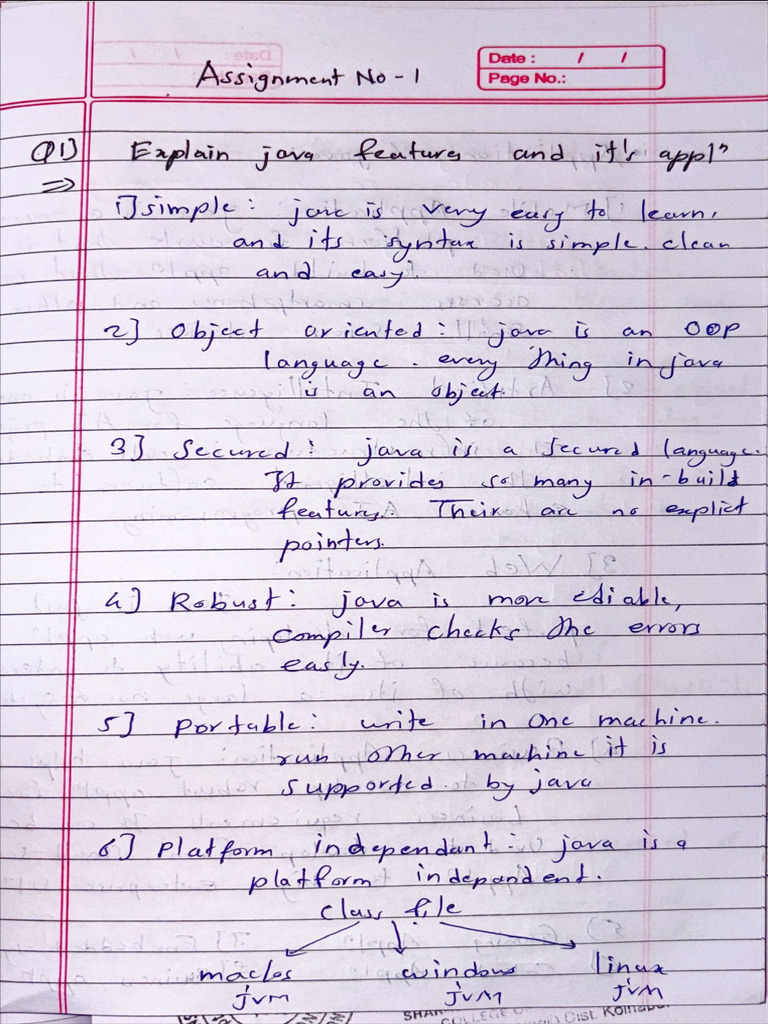 Assignment No - 1
Date : / /
Page No.:
Q1] Explain java features and it's appln
⇒
1] simple : java is very easy to learn,
and its syntax is simple. clean
and easy.
2] Object oriented : java is an OOP
language. every thing in java
is an object.
3] Secured : java is a secured language.
It provides so many in-build
features. Their are no explict
pointers.
4] Robust : java is more
compiler checks the errors
easly.
5] Portable : write in one machine.
run other machine it is
supported. by java
6] Platform independant : java is a
platform independent.
class file
macios windows linux
jvm jvM jvM
SHAR
COLLEGE Dist. Kolhapur